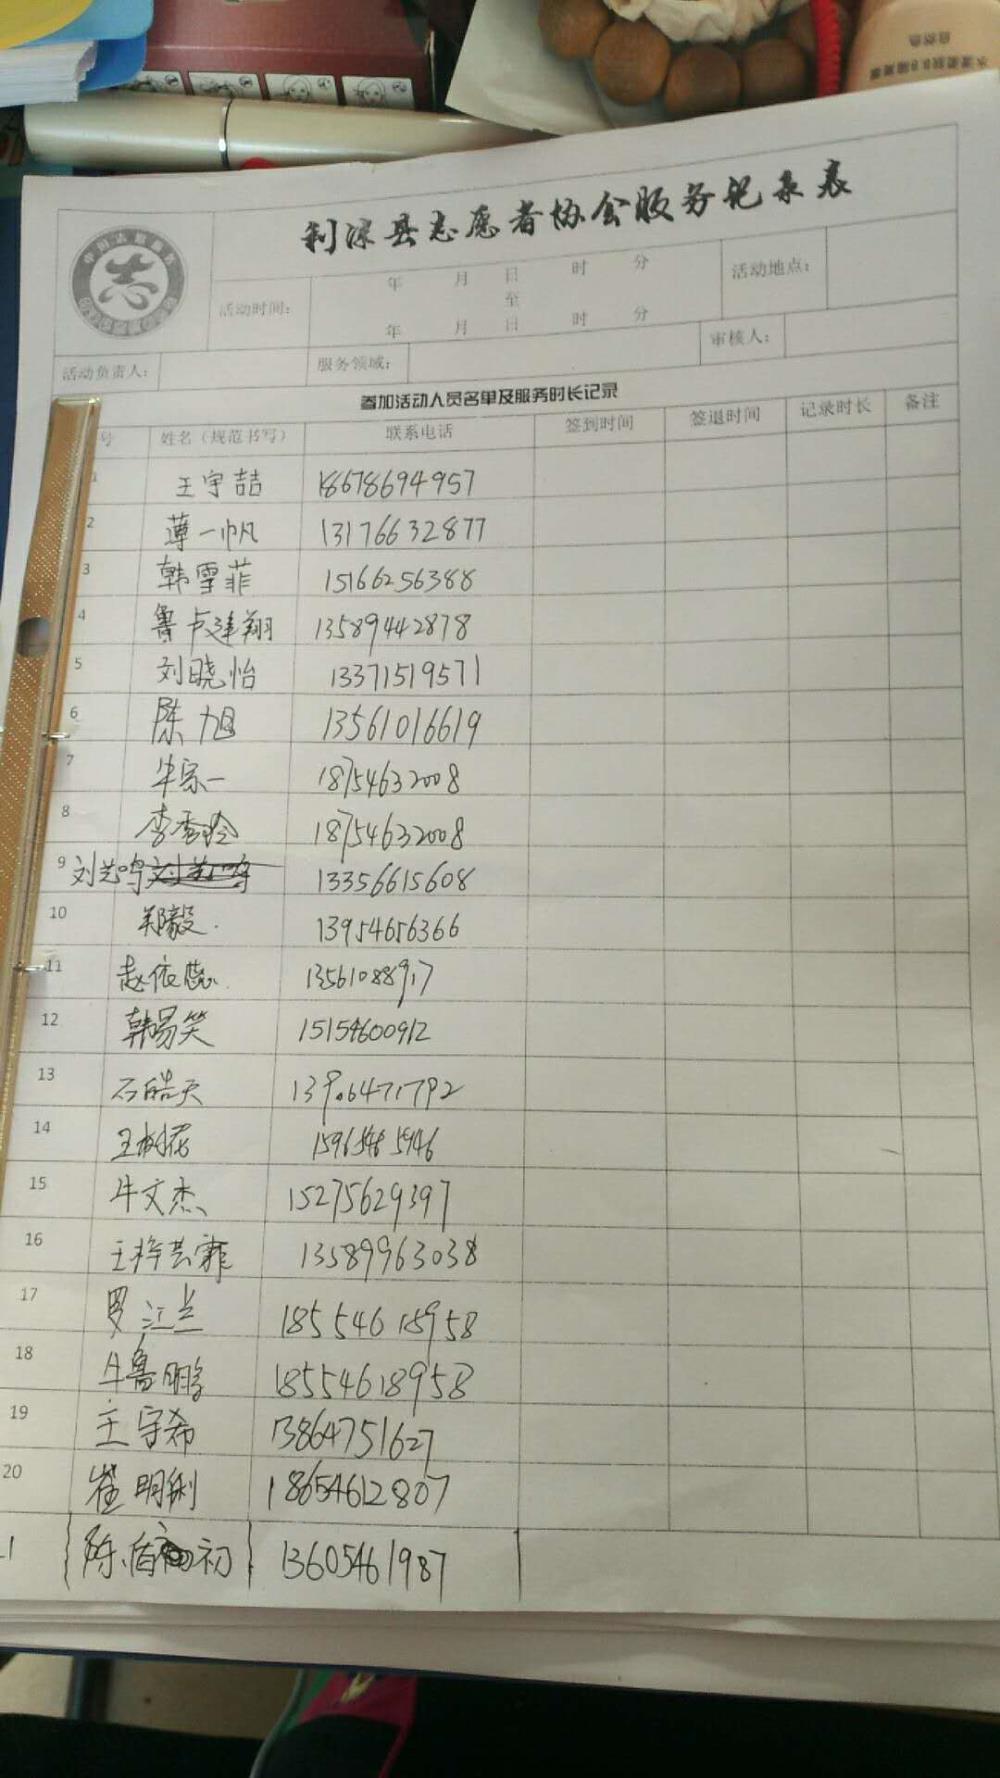 利津县志愿者协会服务记录表
志
活动时间： 年 月 日 时 分 活动地点：
至
年 月 日 时 分
活动负责人： 服务领域： 审核人：
参加活动人员名单及服务时长记录
号 姓名（规范书写） 联系电话 签到时间 签退时间 记录时长 备注
1 王宇喆 18678694957
2 薄一帆 13176632877
3 韩雪菲 15166256388
4 鲁卢逢翔 13589442878
5 刘晓怡 13371519571
6 陈旭 13561016619
7 牛家一 18754632008
8 李香玲 18754632008
9 刘芸鸣 13356615608
10 郑毅 13954656366
11 赵依蕊 13561088917
12 韩易笑 15154600912
13 石皓天 13906471792
14 王树花
15 牛文杰 15275629397
16 王梓芸霏 13589963038
17 罗江兰 18554618958
18 牛鲁鹏 18554618958
19 王宇希 13864751627
20 崔明俐 18654612807
陈盾初 13605461987